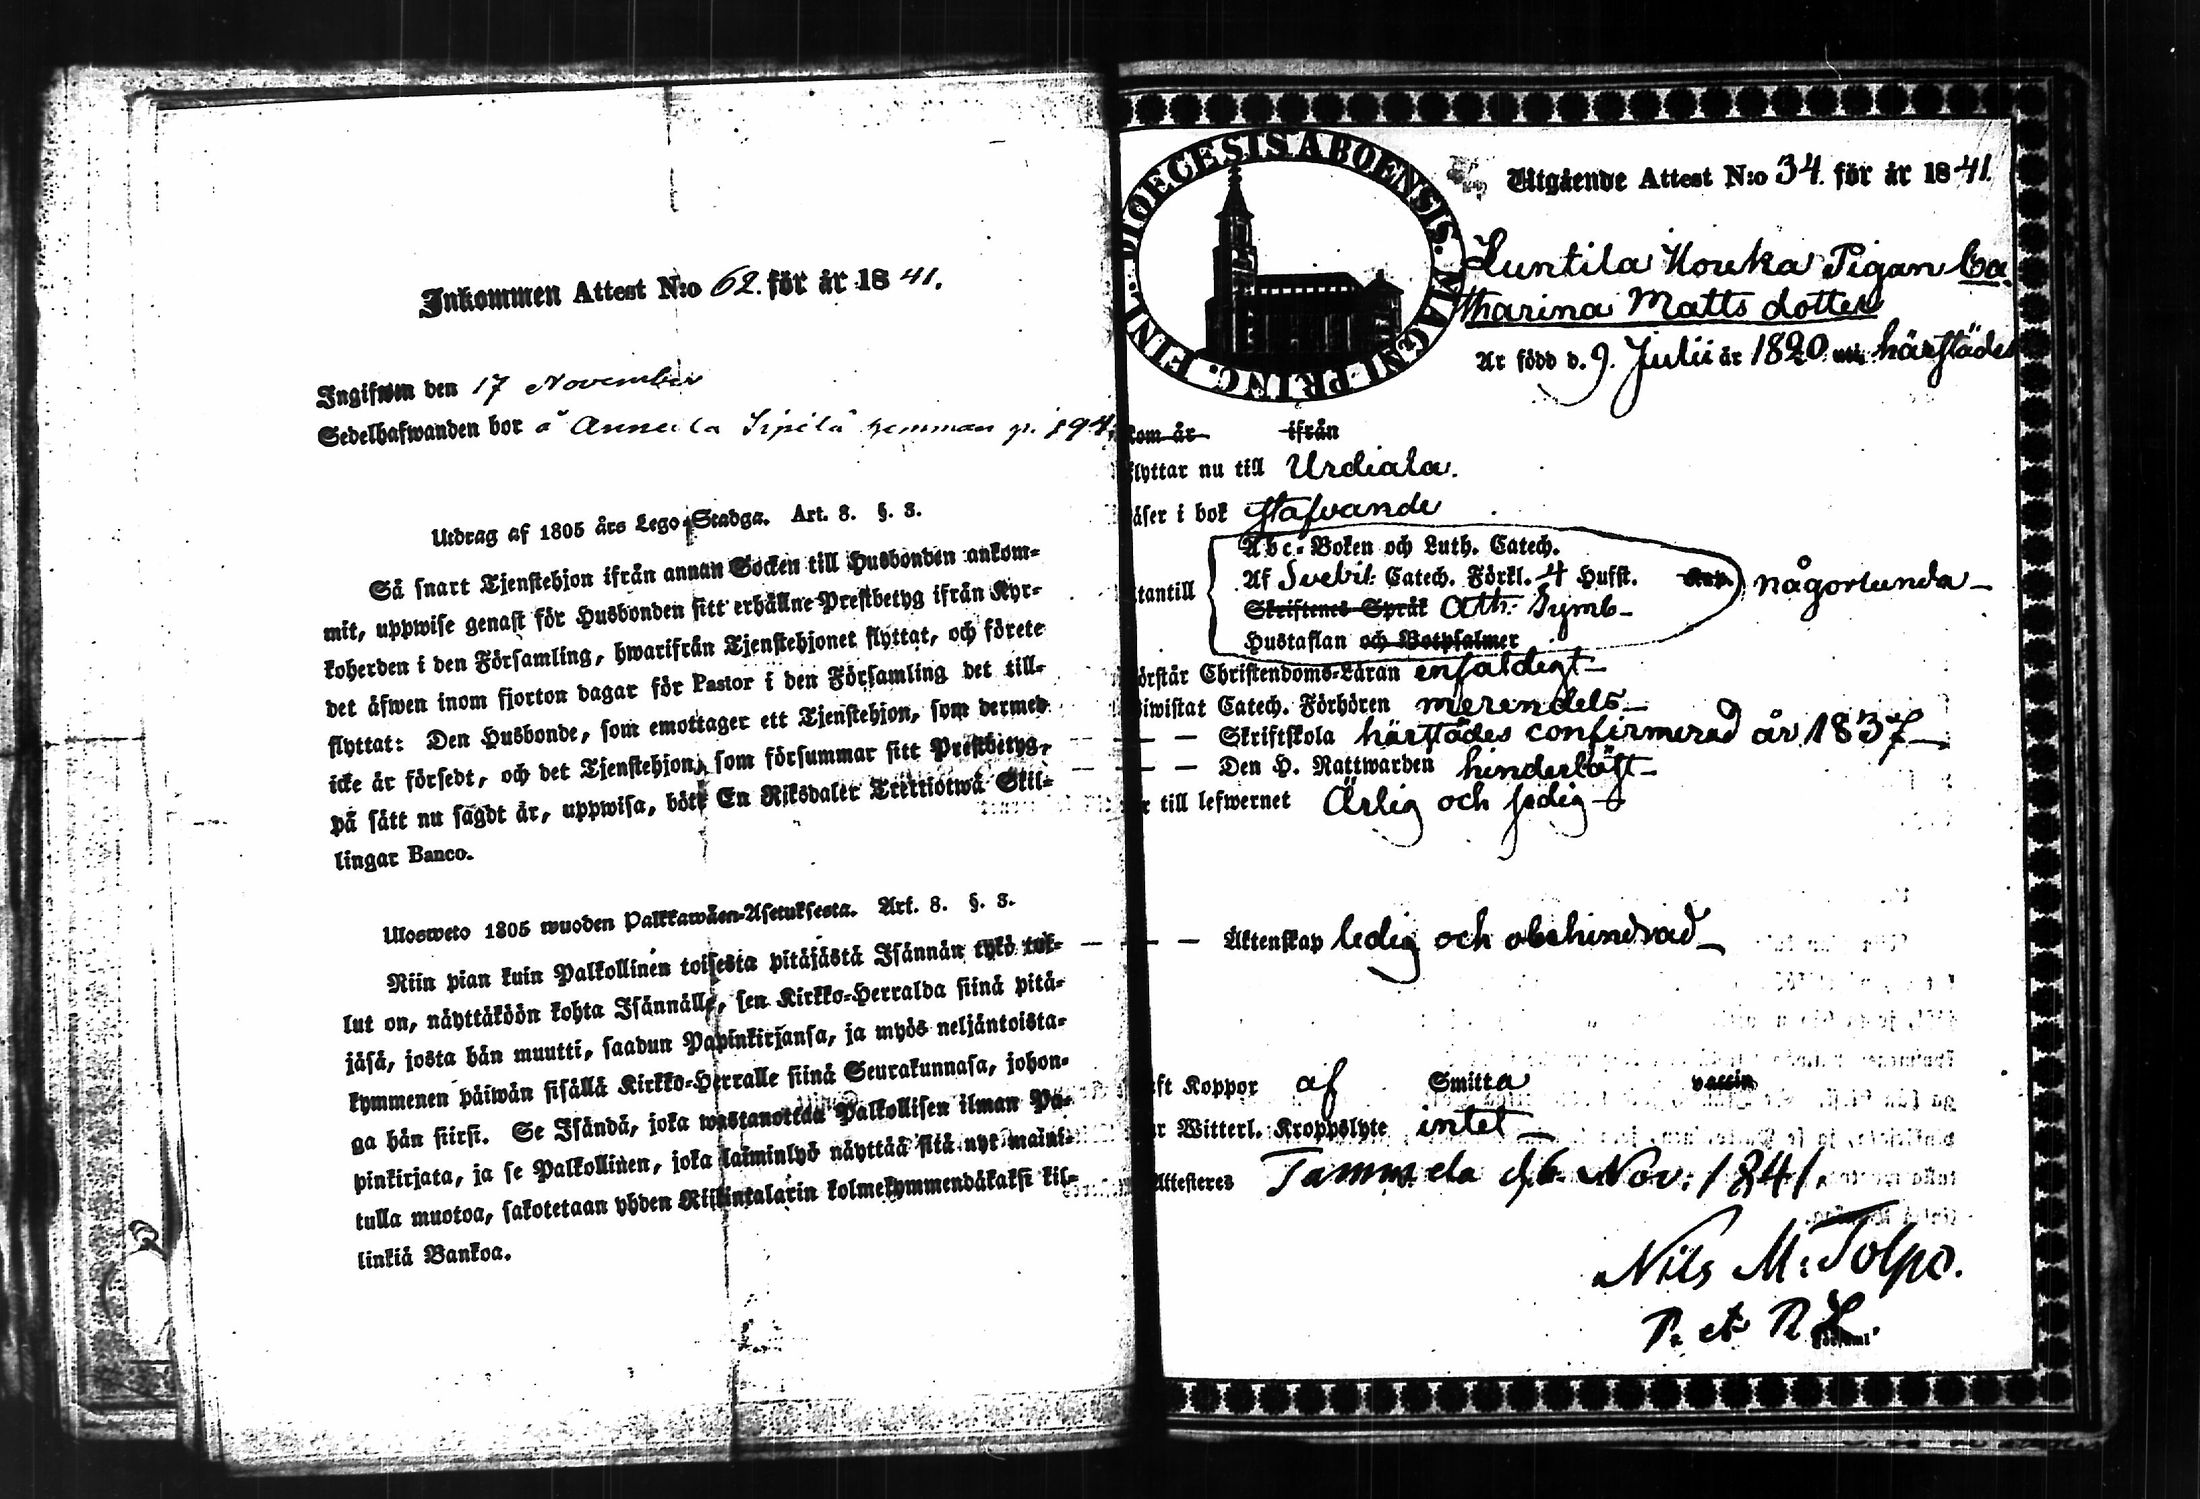 Inkommen Attest N:o 62. för år 1841.
Ingifwen den 17 November
Sedelhafwanden bor å Annula Sipilä hemman p. 194.
Utdrag af 1805 års Lego-Stadga. Art. 8. §. 3.
Så snart Tjenstehjon ifrån annan Socken till Husbonden ankom-
mit, uppwise genast för Husbonden sitt erhållne Prestbetyg ifrån Kyr-
koherden i den Församling, hwarifrån Tjenstehjonet flyttat, och förete
det äfwen inom fjorton dagar för Pastor i den Församling det till-
flyttat: Den Husbonde, som emottager ett Tjenstehjon, som dermed
icke är försedt, och det Tjenstehjon, som försummar sitt Prestbetyg,
på sätt nu sagdt är, uppwisa, böte En Riksdaler Trettiotwå Skil-
lingar Banco.
Ulosweto 1805 wuoden Palkkawäen-Asetuksesta. Art. 8. §. 3.
Niin pian kuin Palkollinen toisesta pitäjästä Isännän tykö tul-
lut on, näyttäköön kohta Isännälle, sen Kirkko-Herralda siinä pitä-
jäsä, josta hän muutti, saadun Papinkirjansa, ja myös neljäntoista-
kymmenen päiwän sisällä Kirkko-Herralle siinä Seurakunnasa, johon-
ga hän siirsi. Se Isändä, joka wastanottaa Palkollisen ilman Pa-
pinkirjata, ja se Palkollinen, joka laiminlyö näyttää sitä nyt mainit-
tulla muotoa, sakotetaan yhden Riksintalarin kolmekymmendäkaksi kil-
linkiä Bankoa.
DIOECESIS ABOENSIS. MAGNI PRINC. FINL.
Utgående Attest N:o 34. för år 1841.
Luntila Kouka Pigan Ca
tharina Matts dotter
Är född d. 9. Julii år 1820 uti härstädes
kom år ifrån
flyttar nu till Urdiala.
läser i bok stafvande
Abc-Boken och Luth. Catech.
Af Svebil. Catech. Förkl. 4 Hufst. Kap. någorlunda
utantill
Skriftenes Språk Ath. Symb
Hustaflan och Botpsalmer
förstår Christendoms-Läran enfaldigt
biwistat Catech. Förhören merendels
Skriftskola härstädes confirmerad år 1837
Den H. Nattwarden hinderlöst
är till lefwernet Ärlig och sedig
Äktenskap ledig och obehindrad
haft Koppor af Smitta vaccin
har Witterl. Kroppslyte intet
Attesteres Tammela d. 6. Nov: 1841.
Nils M: Tolpo.
P. et P. L.